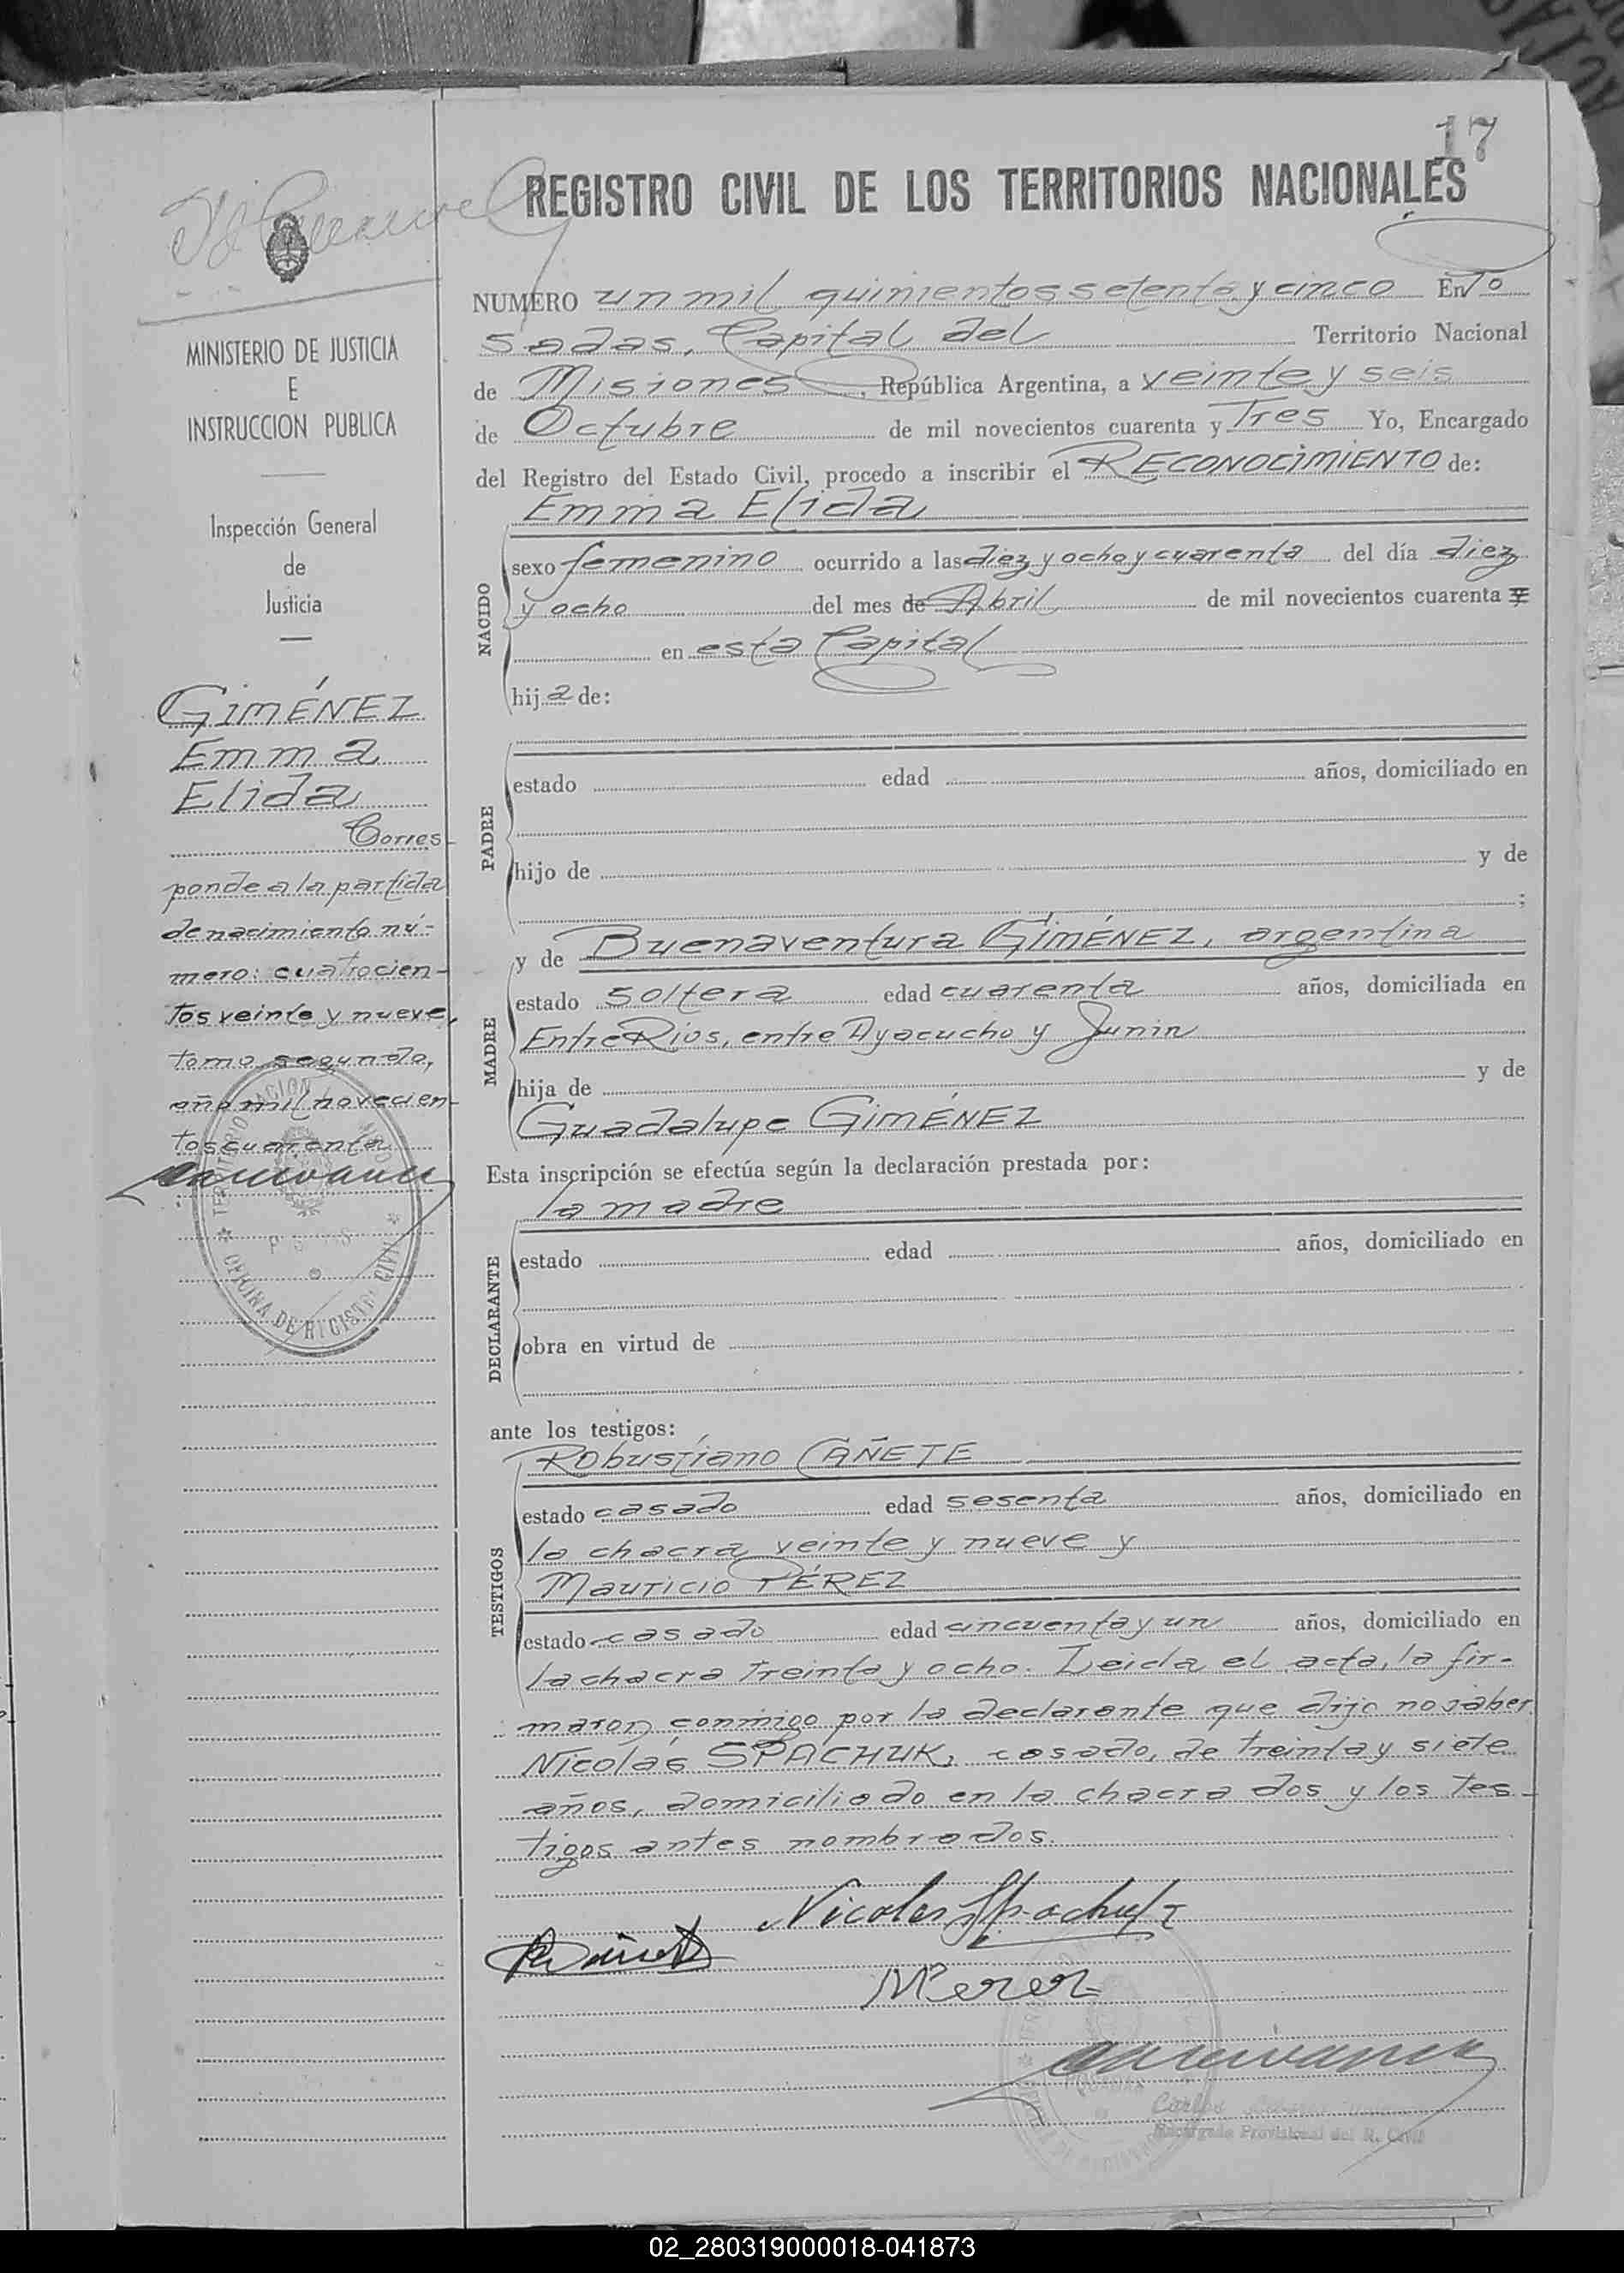 17
REGISTRO CIVIL DE LOS TERRITORIOS NACIONALES
NUMERO un mil quinientos setenta y cinco En Po
sadas, Capital del Territorio Nacional
de Misiones, República Argentina, a veinte y seis
de Octubre de mil novecientos cuarenta y Tres Yo, Encargado
del Registro del Estado Civil, procedo a inscribir el RECONOCIMIENTO de:
Emma Elida
NACIDO
sexo femenino ocurrido a las diez y ocho y cuarenta del día diez
y ocho del mes de Abril de mil novecientos cuarenta y
en esta Capital
hija de:
PADRE
estado edad años, domiciliado en
hijo de y de
;
MADRE
y de Buenaventura GIMÉNEZ, argentina
estado soltera edad cuarenta años, domiciliada en
Entre Rios, entre Ayacucho y Junin
hija de y de
Guadalupe GIMÉNEZ
Esta inscripción se efectúa según la declaración prestada por:
la madre
DECLARANTE
estado edad años, domiciliado en
obra en virtud de
ante los testigos:
TESTIGOS
Robustiano CAÑETE
estado casado edad sesenta años, domiciliado en
la chacra veinte y nueve y
Mauricio PÉREZ
estado casado edad cincuenta y un años, domiciliado en
la chacra treinta y ocho. Leida el acta, la fir-
maron conmigo por la declarante que dijo no saber
Nicolás SPACHUK, casado, de treinta y siete
años, domiciliado en la chacra dos y los tes-
tigos antes nombrados.
Nicolas Spachuk
M Perez
Encargado Provisional del R. Civil
MINISTERIO DE JUSTICIA
E
INSTRUCCION PUBLICA
Inspección General
de
Justicia
GIMÉNEZ
Emma
Elida
Corres-
ponde a la partida
de nacimiento nú-
mero: cuatrocien-
tos veinte y nueve,
tomo segundo,
año mil novecien-
tos cuarenta
OFICINA DE REGISTRO CIVIL
02_280319000018-041873